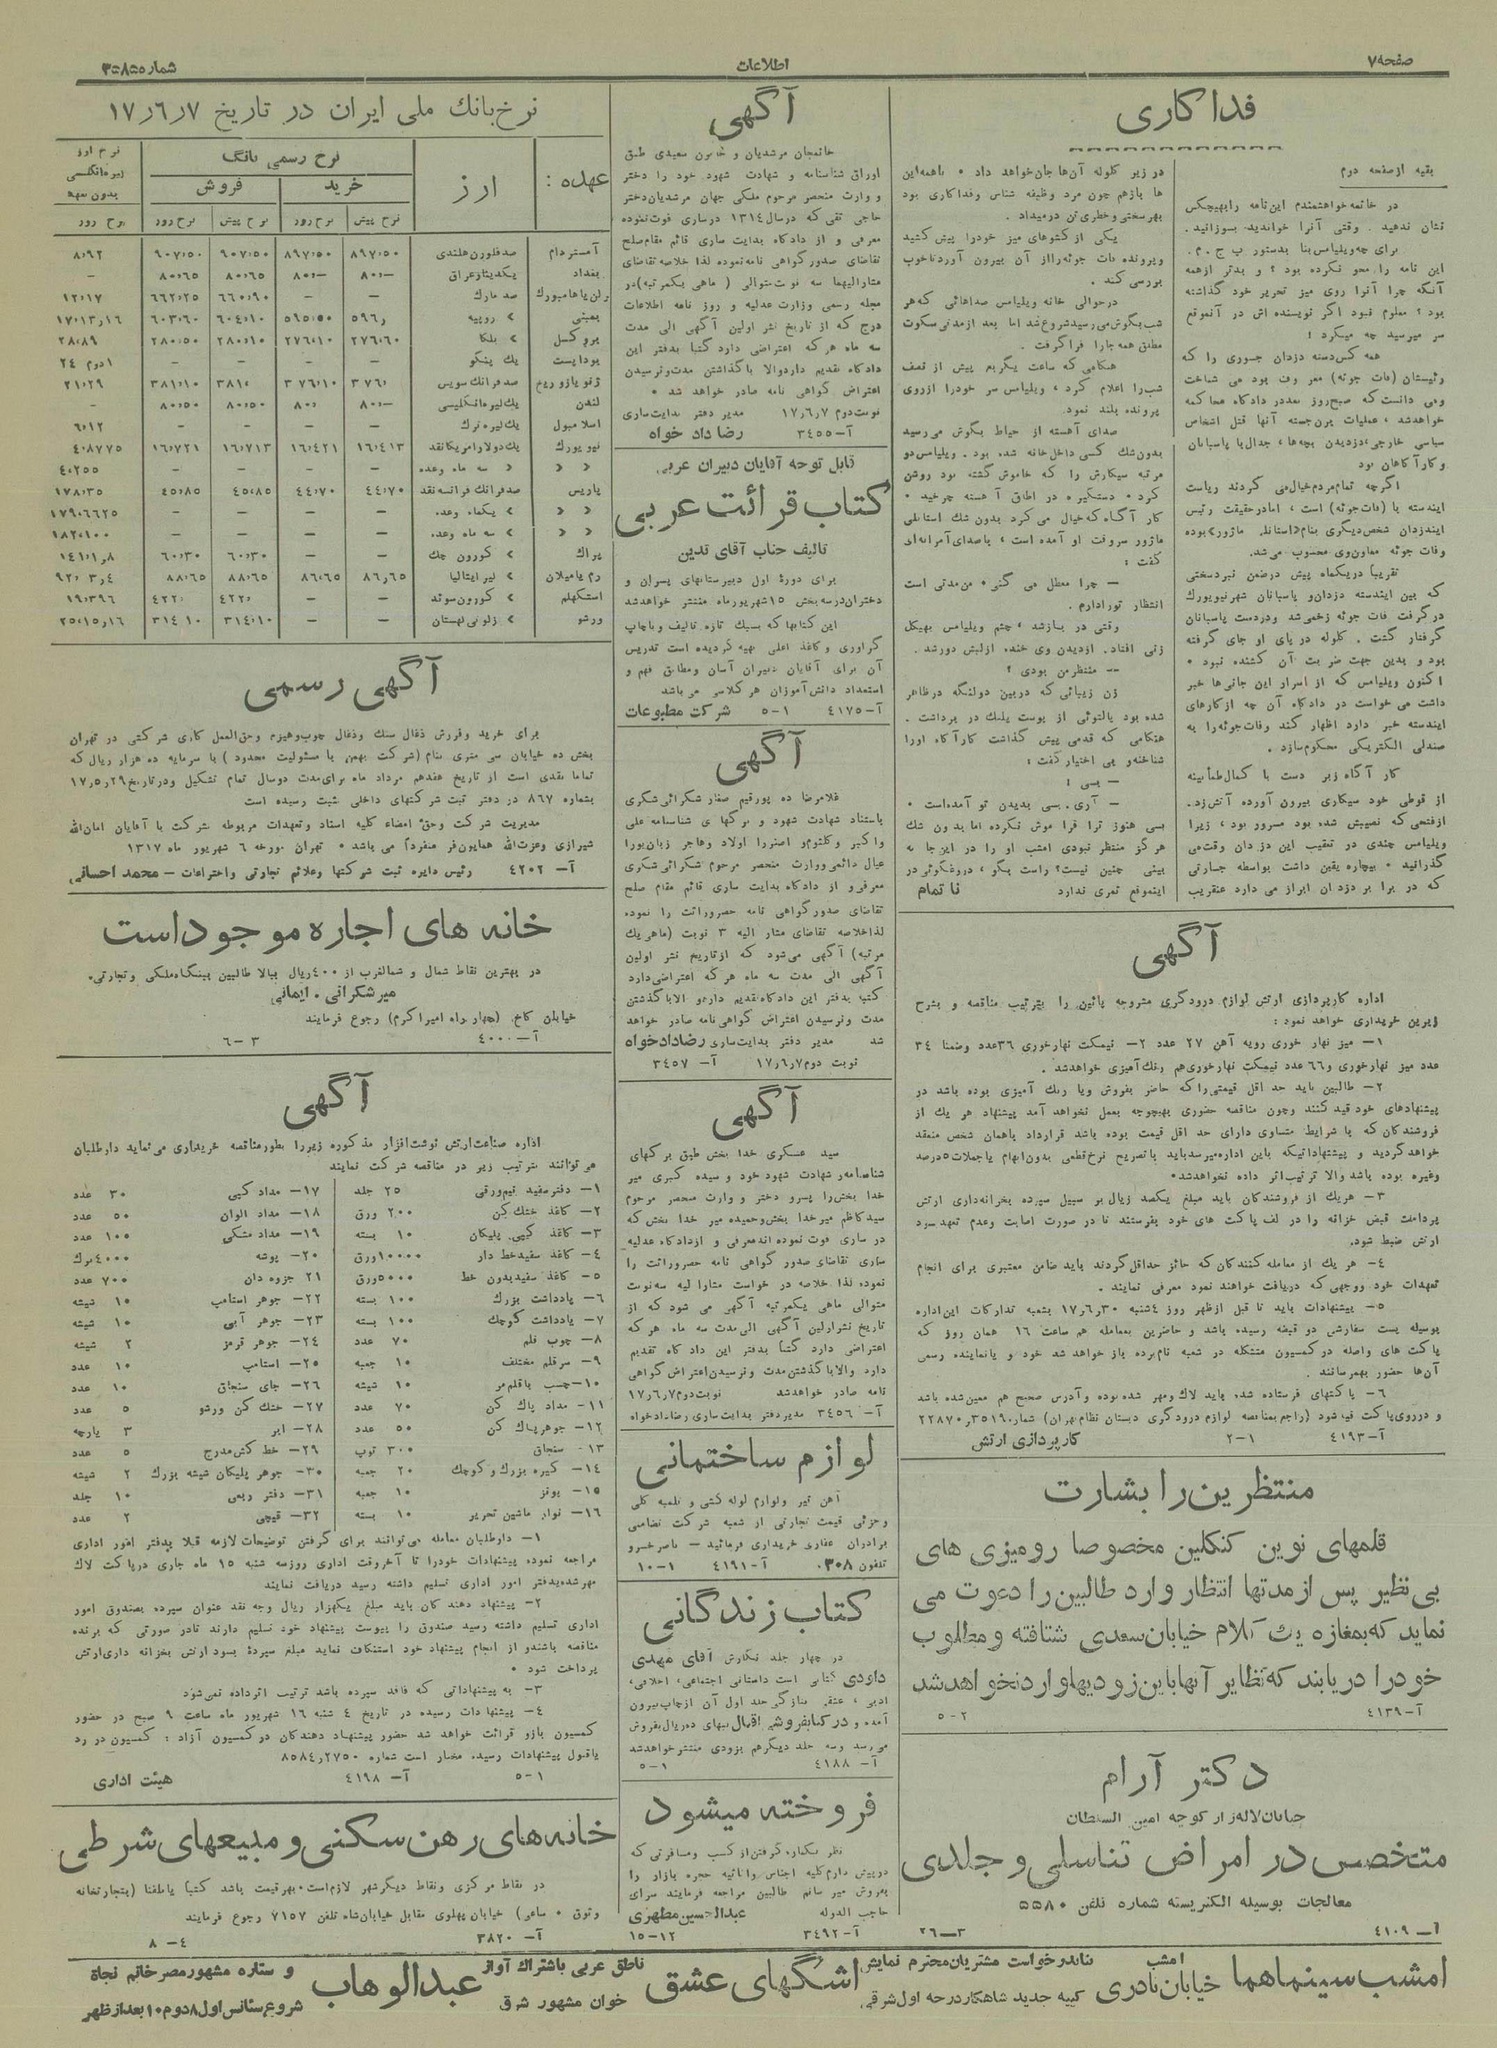 صفحه ۷
اطلاعات
شماره ۳۰۸۰۵
فداکاری
بقیه از صفحه دوم
در خاتمه خواهشمندم این نامه را بهیچکس
نشان ندهید . وقتی آنرا خواندید بسوزانید .
برای چه ویلیامس بنا بدستور ب ج . م .
این نامه را محو نکرده بود ؟ و بدتر از همه
آنکه چرا آنرا روی میز تحریر خود گذاشته
بود ؟ معلوم نبود اگر نویسنده اش در آنموقع
سر میرسید چه میکرد ؟
همه کس دسته دزدان جسوری را که
رئیستان (فات جوئه) معروف بود می شناخت
ومی دانست که صبح روز بعد در دادگاه محاکمه
خواهد شد ، عملیات برجسته آنها قتل اشخاص
سیاسی خارجی ، دزدیدن بچه ها ، جدال با پاسبانان
وکارآگاهان بود
اگرچه تمام مردم خیال می کردند ریاست
ایندسته با (فات جوئه) است ، اما در حقیقت رئیس
ایندزدان شخص دیگری بنام «استانلی ماژور» بوده
وفات جوئه معاون وی محسوب می شد .
تقریبا در یکماه پیش در ضمن نبرد سختی
که بین ایندسته دزدان و پاسبانان شهر نیویورک
در گرفت فات جوئه زخمی شد و در دست پاسبانان
گرفتار گشت . گلوله در پای او جای گرفته
بود و بدین جهت ضربت آن کشنده نبود .
اکنون ویلیامس که از اسرار این جانی ها خبر
داشت می خواست در دادگاه آن چه از کارهای
ایندسته خبر دارد اظهار کند وفات جوئه را به
صندلی الکتریکی محکوم سازد .
کار آگاه زبر دست با کمال طمأنینه
از قوطی خود سیگاری بیرون آورده آتش زد .
از فتحی که نصیبش شده بود مسرور بود ، زیرا
ویلیامس چندی در تعقیب این دزدان وقت می
گذرانید . بیچاره یقین داشت بواسطه جسارتی
که در برابر دزدان ابراز می دارد عنقریب
در زیر گلوله آن ها جان خواهد داد . باهمه این
ها بازهم چون مرد وظیفه شناس وفداکاری بود
بهر سختی و خطری تن در میداد .
یکی از کشوهای میز خود را پیش کشید
وپرونده فات جوئه را از آن بیرون آورد تا خوب
بررسی کند .
در حوالی خانه ویلیامس صداهائی که هر
شب بگوش می رسید شروع شد اما بعد از مدتی سکوت
مطلق همه جا را فرا گرفت .
هنگامی که ساعت یکربع پیش از نصف
شب را اعلام کرد ، ویلیامس سر خود را از روی
پرونده بلند نمود .
صدای آهسته از حیاط بگوش می رسید
بدون شک کسی داخل خانه شده بود . ویلیامس دو
مرتبه سیگارش را که خاموش گشته بود روشن
کرد . دستگیره در اطاق آهسته چرخید .
کار آگاه که خیال می کرد بدون شک استانلی
ماژور سروقت او آمده است ، با صدای آمرانه ای
گفت :
— چرا معطل می کنی . من مدتی است
انتظار تو را دارم .
وقتی در باز شد ، چشم ویلیامس بهیکل
زنی افتاد . از دیدن وی خنده از لبش دور شد .
— منتظر من بودی ؟
زن زیبائی که در بین دو لنگه در ظاهر
شده بود پالتوئی از پوست پلنگ در برداشت .
هنگامی که قدمی پیش گذاشت کارآگاه او را
شناخته و بی اختیار گفت :
— بسی !
— آری . بسی بدیدن تو آمده است .
بسی هنوز ترا فراموش نکرده اما بدون شک
هرگز منتظر نبودی امشب او را در این جا به
بینی چنین نیست ؟ راست بگو ، دروغگوئی در
اینموقع ثمری ندارد
نا تمام
آگهی
اداره کارپردازی ارتش لوازم درودگری مشروحه پائین را بترتیب مناقصه و بشرح
زیرین خریداری خواهد نمود :
۱— میز نهار خوری رویه آهن ۲۷ عدد ۲— نیمکت نهارخوری ۳۶ عدد وضمنا ۳۴
عدد میز نهارخوری و ۶۶ عدد نیمکت نهارخوری هم رنگ آمیزی خواهد شد .
۲— طالبین باید حد اقل قیمتی را که حاضر بفروش ویا رنگ آمیزی بوده باشد در
پیشنهادهای خود قید کنند وچون مناقصه حضوری بهیچوجه بعمل نخواهد آمد پیشنهاد هر یک از
فروشندگان که با شرایط متساوی دارای حد اقل قیمت بوده باشد قرارداد با همان شخص منعقد
خواهد گردید و پیشنهاداتیکه باین اداره میرسد باید با تصریح نرخ قطعی بدون ابهام یا جملات ۵ درصد
وغیره بوده باشد والا ترتیب اثر داده نخواهد شد .
۳— هر یک از فروشندگان باید مبلغ یکصد ریال بر سبیل سپرده بخزانه داری ارتش
پرداخت قبض خزانه را در لف پاکت های خود بفرستند تا در صورت اصابت وعدم تعهد سپرده
ارتش ضبط شود .
۴— هر یک از معامله کنندگان که حائز حداقل گردند باید ضامن معتبری برای انجام
تعهدات خود ووجهی که دریافت خواهند نمود معرفی نمایند .
۵— پیشنهادات باید تا قبل از ظهر روز ۴ شنبه ۱۷٫۶٫۳۰ بشعبه تدارکات این اداره
بوسیله پست سفارشی دو قبضه رسیده باشد و حاضرین بمعامله هم ساعت ۱۶ همان روز که
پاکت های واصله در کمسیون متشکله در شعبه نام برده باز خواهد شد خود و یا نماینده رسمی
آن ها حضور بهمرسانند .
۶— پاکتهای فرستاده شده باید لاک ومهر شده بوده و آدرس صحیح هم معین شده باشد
و در روی پاکت قید شود (راجع بمناقصه لوازم درودگری دبستان نظام تهران) شماره ۲۲۸۷۰٫۳۵۱۹
آ—۴۱۹۳ ۱—۲ کارپردازی ارتش
منتظرین را بشارت
قلمهای نوین کنکلین مخصوصا رومیزی های
بی نظیر پس از مدتها انتظار وارد طالبین را دعوت می
نماید که بمغازه یک کلام خیابان سعدی شتافته و مطلوب
خود را دریابند که نظایر آنها باین زودیها وارد نخواهد شد
آ—۴۱۳۹ ۲—۵
دکتر آرام
خیابان لاله زار کوچه امین السلطان
متخصص در امراض تناسلی و جلدی
معالجات بوسیله الکتریسته شماره تلفن ۵۵۸۰
آ—۴۱۰۹ ۳—۲۶
آگهی
خانمجان مرشدیان و خاتون سعیدی طبق
اوراق شناسنامه و شهادت شهود خود را دختر
و وارث منحصر مرحوم ملکی جهان مرشدیان دختر
حاجی تقی که در سال ۱۳۱۴ در ساری فوت نموده
معرفی و از دادگاه بدایت ساری قائم مقام صلح
تقاضای صدور گواهی نامه نموده لذا خلاصه تقاضای
مشارالیهما سه نوبت متوالی (ماهی یکمرتبه) در
مجله رسمی وزارت عدلیه و روزنامه اطلاعات
درج که از تاریخ نشر اولین آگهی الی مدت
سه ماه هر که اعتراضی دارد کتبا بدفتر این
دادگاه تقدیم دارد والا با گذاشتن مدت و نرسیدن
اعتراض گواهی نامه صادر خواهد شد .
نوبت دوم ۱۷٫۶٫۷ مدیر دفتر بدایت ساری
آ—۳۴۵۵ رضا داد خواه
قابل توجه آقایان دبیران عربی
کتاب قرائت عربی
تالیف جناب آقای تدین
برای دورهٔ اول دبیرستانهای پسران و
دختران در سه بخش ۱۵ شهریور ماه منتشر خواهد شد
این کتابها که بسبک تازه تالیف و با چاپ
گراوری و کاغذ اعلی تهیه گردیده است تدریس
آن برای آقایان دبیران آسان و مطابق فهم و
استعداد دانش آموزان هر کلاس می باشد
آ—۴۱۷۵ ۱—۵ شرکت مطبوعات
آگهی
غلامرضا ده پور قیم صغار شکرائی شکری
باستناد شهادت شهود و برگهای شناسنامه علی
واکبر و کلثوم و اصغر را اولاد وهاجر زبان پور را
عیال دائمی ووارث منحصر مرحوم شکرائی شکری
معرفی و از دادگاه بدایت ساری قائم مقام صلح
تقاضای صدور گواهی نامه حصر وراثت را نموده
لذا خلاصه تقاضای مشار الیه ۳ نوبت (ماهی یک
مرتبه) آگهی می شود که از تاریخ نشر اولین
آگهی الی مدت سه ماه هر که اعتراضی دارد
کتبا بدفتر این دادگاه تقدیم دارد و الا با گذشتن
مدت ونرسیدن اعتراض گواهی نامه صادر خواهد
شد مدیر دفتر بدایت ساری رضا داد خواه
نوبت دوم ۱۷٫۶٫۷ آ— ۳۴۵۷
آگهی
سید عسکری خدا بخش طبق برگهای
شناسنامه و شهادت شهود خود و سیده کبری میر
خدا بخش را پسر و دختر و وارث منحصر مرحوم
سید کاظم میر خدا بخش وحمیده میر خدا بخش که
در ساری فوت نموده اند معرفی و از دادگاه عدلیه
ساری تقاضای صدور گواهی نامه حصر وراثت را
نموده لذا خلاصه در خواست مشارالیه سه نوبت
متوالی ماهی یکمرتبه آگهی می شود که از
تاریخ نشر اولین آگهی الی مدت سه ماه هر که
اعتراضی دارد کتبا بدفتر این دادگاه تقدیم
دارد والا با گذشتن مدت و نرسیدن اعتراض گواهی
نامه صادر خواهد شد نوبت دوم ۱۷٫۶٫۷
آ—۳۴۵۶ مدیر دفتر بدایت ساری رضا دادخواه
لوازم ساختمانی
آهن تیر ولوازم لوله کشی و تلمبه کلی
وجزئی قیمت تجارتی از شعبه شرکت تضامنی
برادران غفاری خریداری فرمائید — ناصر خسرو
تلفون ۰۳۰۸ آ—۴۱۹۱ ۱—۱۰
کتاب زندگانی
در چهار جلد نگارش آقای مهدی
داودی کتابی است داستانی اجتماعی ، اخلاقی ،
ادبی ، عشقی بتازگی جلد اول آن از چاپ بیرون
آمده و در کتابفروشی اقبال ببهای ده ریال بفروش
می رسد وسه جلد دیگر هم بزودی منتشر خواهد شد
آ— ۴۱۸۸ ۱—۵
فروخته میشود
نظر بکناره گرفتن از کسب ومسافرتی که
در پیش دارم کلیه اجناس واثاثیه حجره بازار را
بفروش میرسانم طالبین مراجعه فرمایند سرای
حاجب الدوله عبدالحسین مطهری
آ—۳۴۹۲ ۱۲—۱۵
نرخ بانک ملی ایران در تاریخ ۱۷٫۶٫۷
عهده : | ارز | نرخ رسمی بانگ | نرخ ارز لیره انگلیسی بدون سهمیه
خرید | فروش
نرخ پیش | نرخ روز | نرخ پیش | نرخ روز | نرخ روز
آمستردام صد فلورن هلندی ۸۹۷،۵۰ ۸۹۷،۵۰ ۹۰۷،۵۰ ۹۰۷،۵۰ ۸،۹۲
بغداد یکدینار عراق ۸۰،— ۸۰،— ۸۰،۶۵ ۸۰،۶۵ —
برلن یا هامبورک صد مارک — — ۶۶۰،۹۰ ۶۶۲،۲۵ ۱۲،۱۷
بمبئی » روپیه ۵۹۶٫ ۵۹۵،۵۰ ۶۰۴،۱۰ ۶۰۳،۶۰ ۱۷،۱۳٫۱۶
بروکسل » بلگا ۲۷۶،۶۰ ۲۷۶،۱۰ ۲۸۰،۹۰ ۲۸۰،۵۰ ۲۸،۸۹
بوداپست یک پنگو — — — — ۲۴ ۱دوم
ژنو یا زوریخ صد فرانک سویس ۳۷۶، ۳۷۶،۱۰ ۳۸۱، ۳۸۱،۱۰ ۲۱،۲۹
لندن یک لیره انگلیسی ۸۰،— ۸۰، ۸۰،۵۰ ۸۰،۵۰ —
اسلامبول یک لیره ترک — — — — ۶،۱۲
نیویورک یک دولار امریکا نقد ۱۶،۴۱۳ ۱۶،۴۲۱ ۱۶،۷۱۳ ۱۶،۷۲۱ ۴،۸۷۷۵
» » » سه ماه وعده — — — — ۴،۲۵۵
پاریس صد فرانک فرانسه نقد ۴۴،۷۰ ۴۴،۷۰ ۴۵،۸۵ ۴۵،۸۵ ۱۷۸،۳۵
» » » یکماه وعده — — — — ۱۷۹،۶۶۲۵
» » » سه ماه وعده — — — — ۱۸۲،۱۰۰
پراک » کورون چک — — ۶۰،۳۰ ۶۰،۳۰ ۱۴۱،۱٫۸
رم یا میلان » لیر ایتالیا ۸۶،۶۵ ۸۶،۶۵ ۸۸،۶۵ ۸۸،۶۵ ۹۲،۳٫۴
استکهلم » کورون سوئد — — ۴۲۲، ۴۲۲، ۱۹،۳۹۶
ورشو » زلوتی لهستان — — ۳۱۴،۱۰ ۳۱۴،۱۰ ۲۵،۱۵٫۱۶
آگهی رسمی
برای خرید وفروش ذغال سنگ وذغال چوب وهیزم وحق العمل کاری شرکتی در تهران
بخش ده خیابان سی متری بنام (شرکت بهمن با مسئولیت محدود) با سرمایه ده هزار ریال که
تماما نقدی است از تاریخ هفدهم مرداد ماه برای مدت دو سال تمام تشکیل ودر تاریخ ۱۷٫۵٫۲۹
بشماره ۸۶۷ در دفتر ثبت شرکتهای داخلی ثبت رسیده است
مدیریت شرکت وحق امضاء کلیه اسناد وتعهدات مربوطه شرکت با آقایان امان الله
شیرازی وعزت الله همایون فر منفرداً می باشد . تهران بمورخه ۶ شهریور ماه ۱۳۱۷
آ—۴۲۰۲ رئیس دایره ثبت شرکتها وعلائم تجارتی واختراعات — محمد احسانی
خانه های اجاره موجود است
در بهترین نقاط شمال و شمالغرب از ۴۰۰ ریال ببالا طالبین ببنگاه ملکی وتجارتی .
میر شکرائی . ایمانی
خیابان کاخ . (چهار راه امیر اکرم) رجوع فرمایند
آ—۴۰۰۰ ۳—۶
آگهی
اداره صناعت ارتش نوشت افزار مذکوره زیر را بطور مناقصه خریداری می نماید داوطلبان
می توانند بترتیب زیر در مناقصه شرکت نمایند
۱— دفتر سفید نیم ورقی ۲۵ جلد
۲— کاغذ خشک کن ۲۰۰ ورق
۳— کاغذ کپی پلیکان ۱۰ بسته
۴— کاغذ سفید خط دار ۱۰۰۰۰ ورق
۵— کاغذ سفید بدون خط ۵۰۰۰ ورق
۶— یادداشت بزرک ۱۰۰ بسته
۷— یادداشت کوچک ۱۰۰ بسته
۸— چوب قلم ۷۰ عدد
۹— سر قلم مختلف ۱۰ جعبه
۱۰— چسب با قلم مو ۱۰ شیشه
۱۱— مداد پاک کن ۷۰ عدد
۱۲— جوهر پاک کن ۵۰ عدد
۱۳— سنجاق ۳۰۰ توپ
۱۴— گیره بزرک و کوچک ۲۰ جعبه
۱۵— پونز ۱۰ جعبه
۱۶— نوار ماشین تحریر ۱۰ بسته
۱۷— مداد کپی ۳۰ عدد
۱۸— مداد الوان ۵۰ عدد
۱۹— مداد مشکی ۱۰۰ عدد
۲۰— پوشه ۴۰۰۰ برک
۲۱ جزوه دان ۷۰۰ عدد
۲۲— جوهر استامپ ۱۰ شیشه
۲۳— جوهر آبی ۱۰ شیشه
۲۴— جوهر قرمز ۲ شیشه
۲۵— استامپ ۱۰ عدد
۲۶— جای سنجاق ۱۰ عدد
۲۷— خشک کن ورشو ۵ عدد
۲۸— ابر ۳ پارچه
۲۹— خط کش مدرج ۵ عدد
۳۰— جوهر پلیکان شیشه بزرک ۲ شیشه
۳۱— دفتر ربعی ۱۰ جلد
۳۲— قیچی ۲ عدد
۱— داوطلبان معامله می توانند برای گرفتن توضیحات لازمه قبلا بدفتر امور اداری
مراجعه نموده پیشنهادات خود را تا آخر وقت اداری روز سه شنبه ۱۵ ماه جاری در پاکت لاک
مهر شده بدفتر امور اداری تسلیم داشته رسید دریافت نمایند
۲— پیشنهاد دهندگان باید مبلغ یکهزار ریال وجه نقد عنوان سپرده بصندوق امور
اداری تسلیم داشته رسید صندوق را پیوست پیشنهاد خود تسلیم دارند تا در صورتی که برنده
مناقصه باشند و از انجام پیشنهاد خود استنکاف نماید مبلغ سپردهٔ بسود ارتش بخزانه داری ارتش
پرداخت شود .
۳— به پیشنهاداتی که فاقد سپرده باشد ترتیب اثر داده نمی شود
۴— پیشنهادات رسیده در تاریخ ۴ شنبه ۱۶ شهریور ماه ساعت ۹ صبح در حضور
کمسیون بازو قرائت خواهد شد حضور پیشنهاد دهندگان در کمسیون آزاد : کمسیون در رد
یا قبول پیشنهادات رسیده مختار است شماره ۸۵۸۴٫۲۷۵۰
۱—۵ آ— ۴۱۹۸ هیئت اداری
خانه های رهن سکنی و مبیعهای شرطی
در نقاط مرکزی و نقاط دیگر شهر لازم است . بهر قیمت باشد کتبا یا تلفنا (بتجارتخانه
وثوق . ساعی) خیابان پهلوی مقابل خیابان شاه تلفن ۷۱۵۷ رجوع فرمایند
آ— ۳۸۲۰ ۴—۸
امشب سینما هما امشب خیابان نادری
بنا بدرخواست مشتریان محترم نمایش
کپیه جدید شاهکار درجه اول شرقی
اشگهای عشق
ناطق عربی باشتراک آواز
خوان مشهور شرق
عبدالوهاب
و ستاره مشهور مصر خانم نجاة
شروع سئانس اول ۸ دوم ۱۰ بعد از ظهر